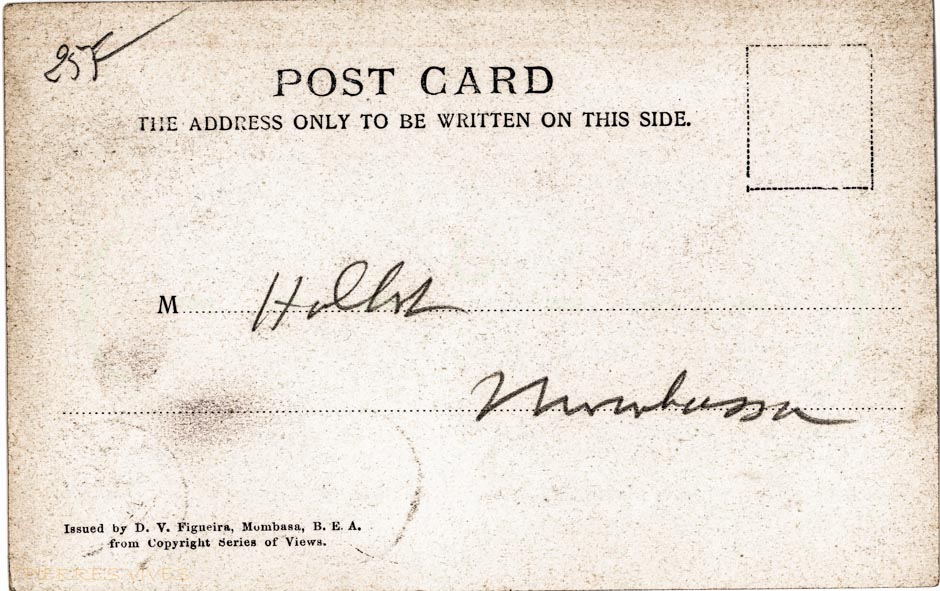 25F
POST CARD
THE ADDRESS ONLY TO BE WRITTEN ON THIS SIDE.
M Hollst
Mombassa
Issued by D. V. Figueira, Mombasa, B. E. A.
from Copyright Series of Views.
PIERRES VIVES